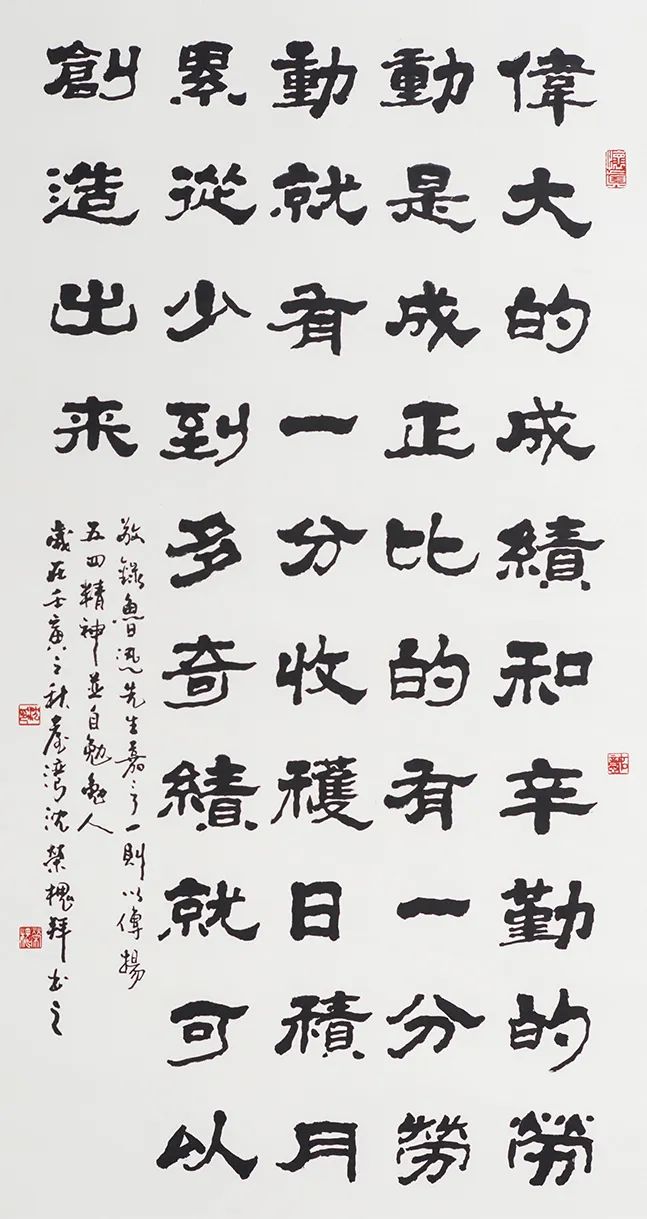 偉大的成績和辛勤的勞
動是成正比的有一分勞
動就有一分收穫日積月
累從少到多奇績就可以
創造出來
敬錄魯迅先生嘉言一則以傳揚
五四精神並自勉勉人
歲在壬寅之秋臺灣沈榮槐拜書之